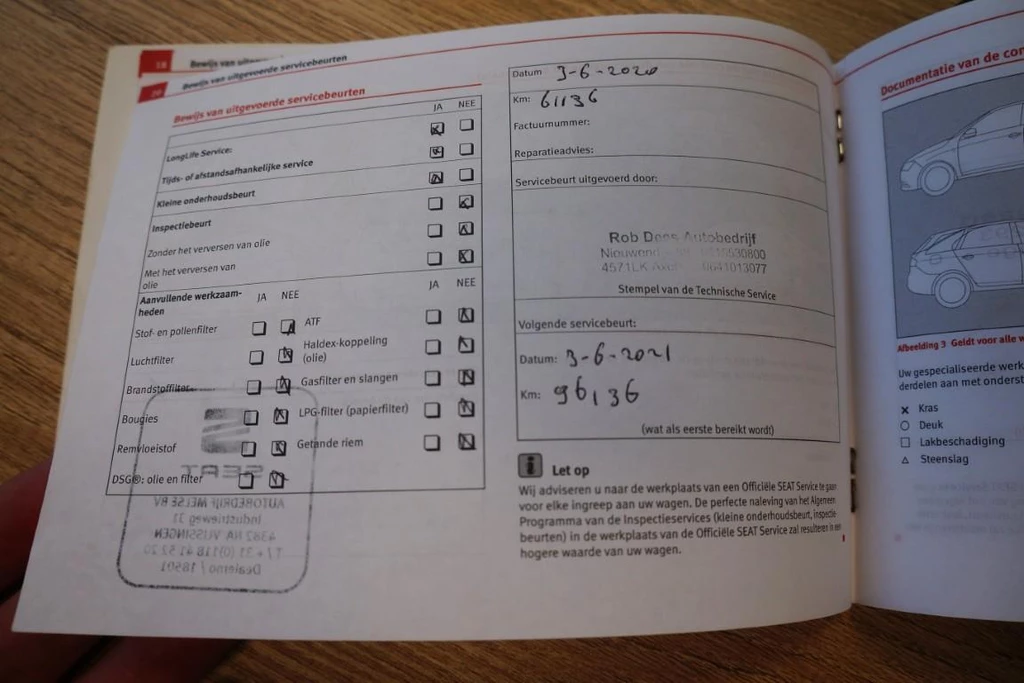 18 Bewijs van
20 Bewijs van uitgevoerde servicebeurten
Bewijs van uitgevoerde servicebeurten
JA NEE
LongLife Service:
Tijds- of afstandsafhankelijke service
Kleine onderhoudsbeurt
Inspectiebeurt
Zonder het verversen van olie
Met het verversen van
olie
Aanvullende werkzaam-
heden
JA NEE
JA NEE
Stof- en pollenfilter
ATF
Luchtfilter
Haldex-koppeling
(olie)
Brandstoffilter
Gasfilter en slangen
Bougies
LPG-filter (papierfilter)
Remvloeistof
Getande riem
DSG®: olie en filter
SEAT
AUTOBEDRIJF MELSE BV
Industrieweg 11
4382 NA VLISSINGEN
T + 31 (0)118 41 52 20
Dealerno / 18501
Datum 3-6-2020
Km: 61136
Factuurnummer:
Reparatieadvies:
Servicebeurt uitgevoerd door:
Rob Dees Autobedrijf
4571LK
Stempel van de Technische Service
Volgende servicebeurt:
Datum: 3-6-2021
Km: 96136
(wat als eerste bereikt wordt)
i Let op
Wij adviseren u naar de werkplaats van een Officiële SEAT Service te gaan
voor elke ingreep aan uw wagen. De perfecte naleving van het Algemeen
Programma van de Inspectieservices (kleine onderhoudsbeurt, inspectie-
beurten) in de werkplaats van de Officiële SEAT Service zal resulteren in een
hogere waarde van uw wagen.
Documentatie van de
Afbeelding 3 Geldt voor alle
Uw gespecialiseerde
derdelen aan met
Kras
Deuk
Lakbeschadiging
Steenslag